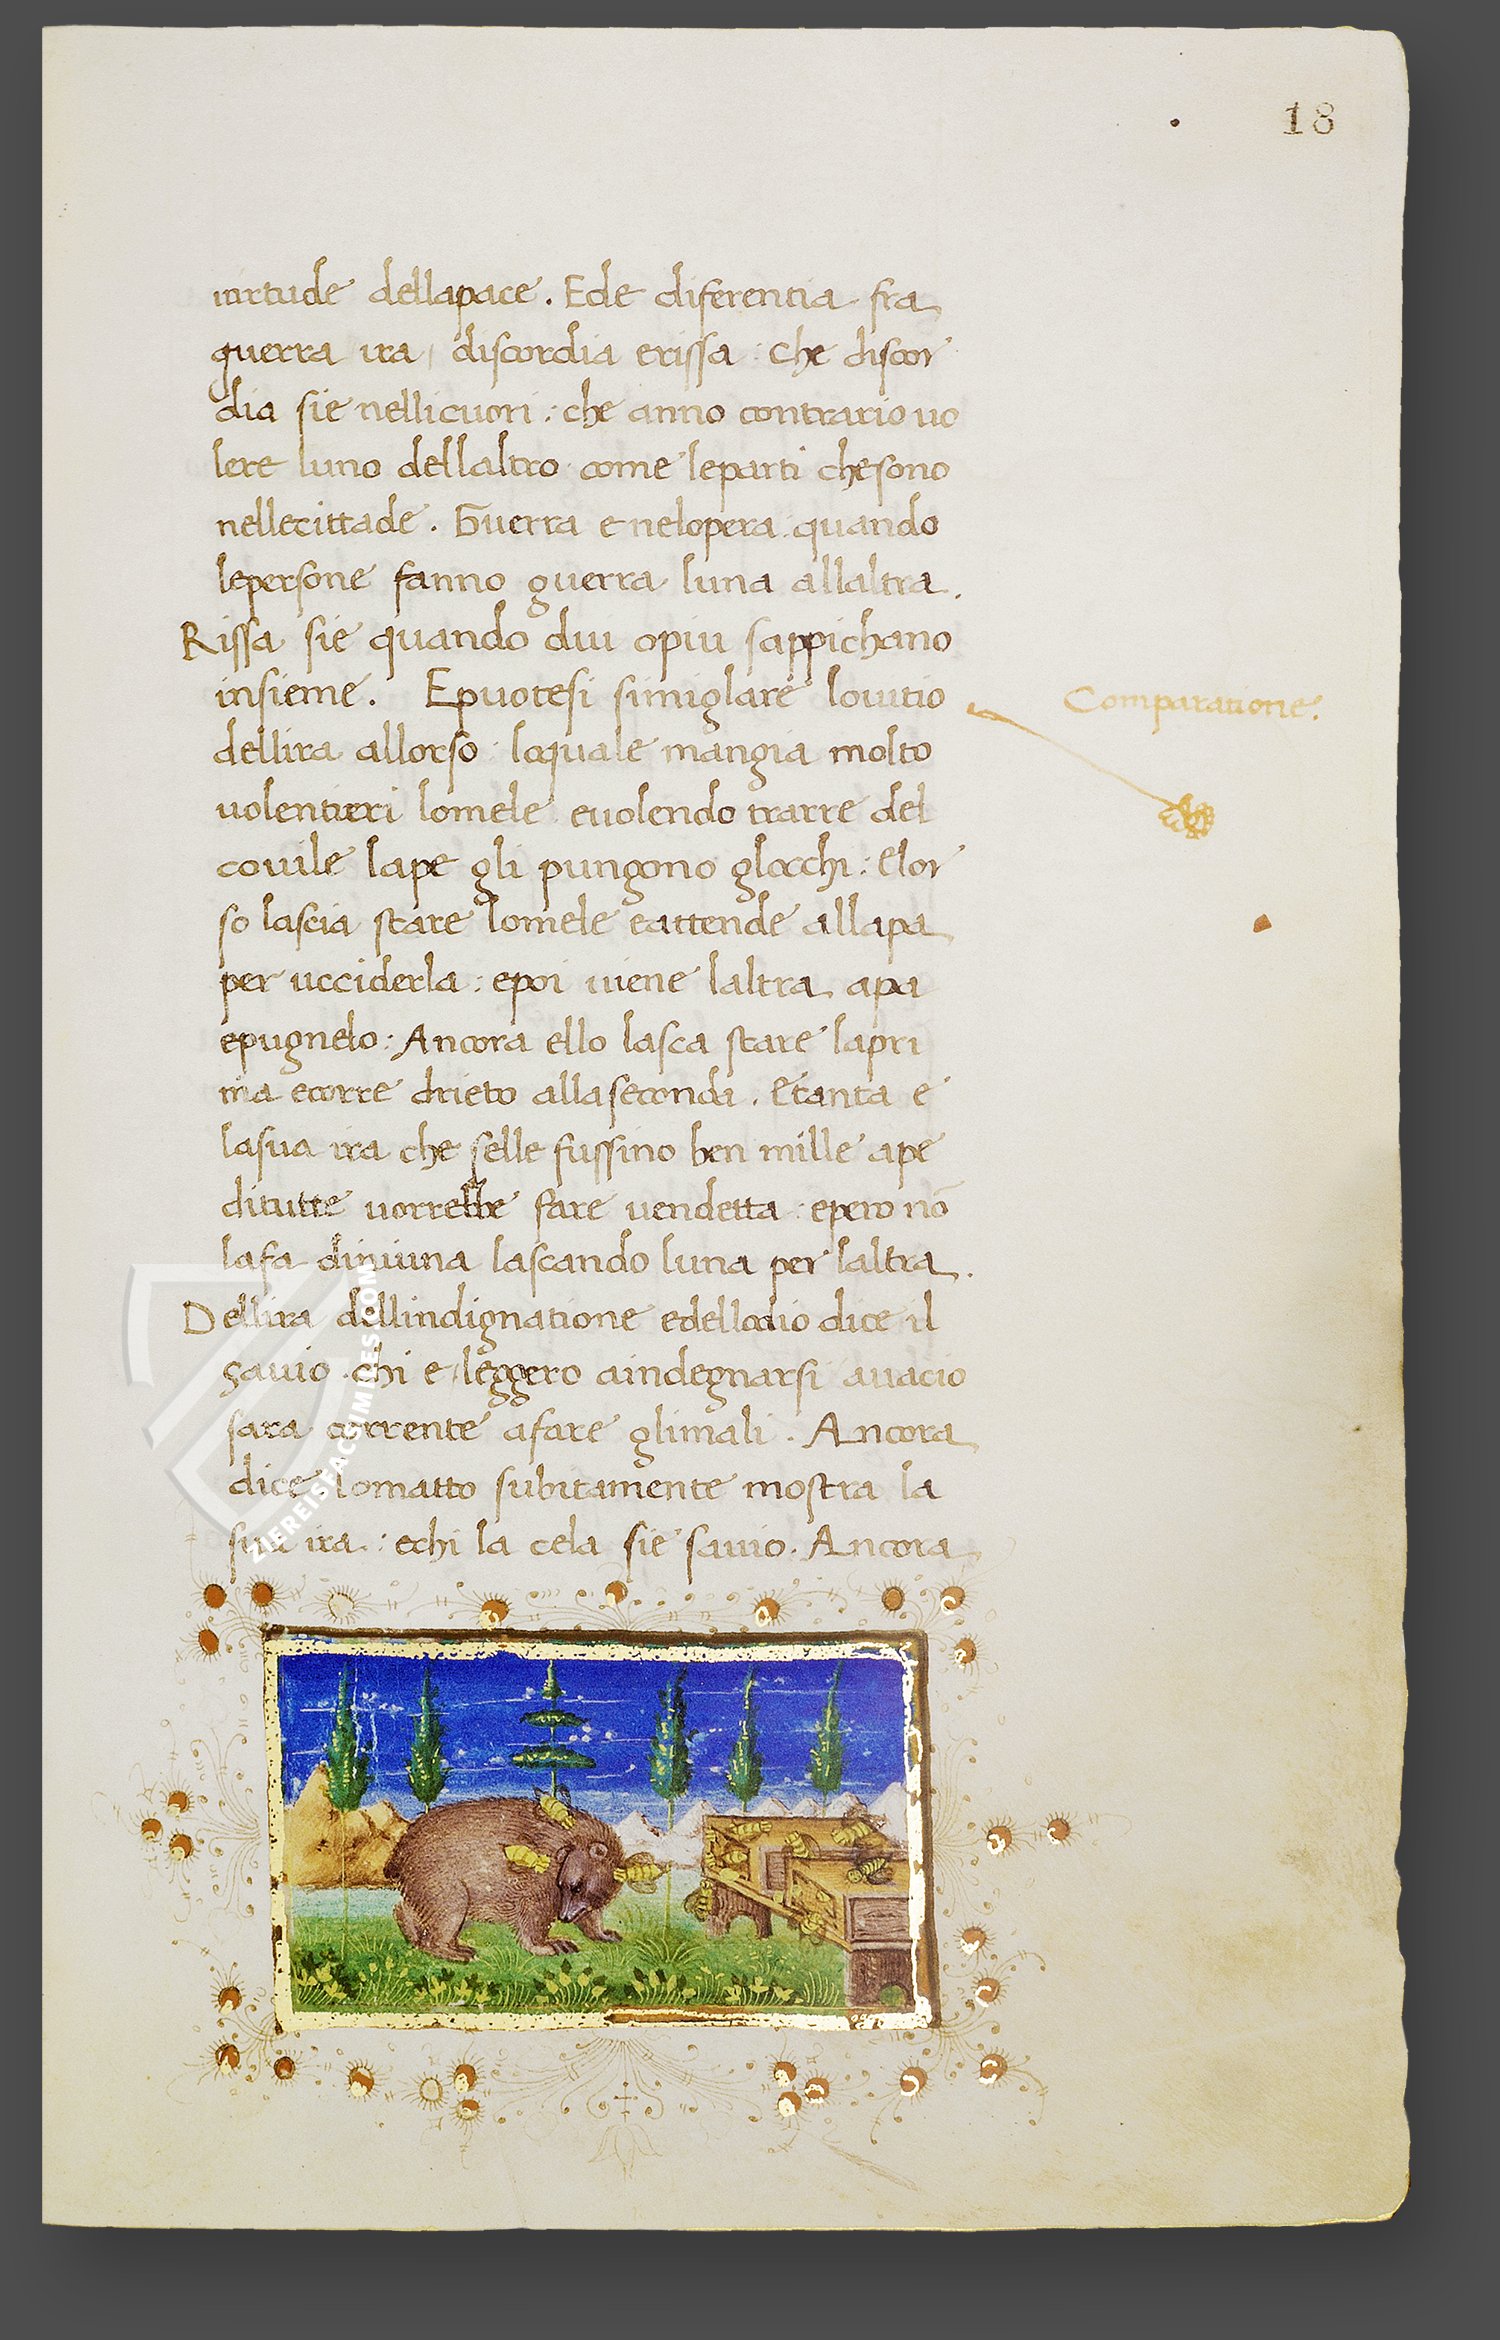 18
uirtude dellapace . Ede diferentia fra
guerra ira discordia erissa : che discor
dia sie nellicuori : che anno contrario uo
lere luno dellaltro come leparti chesono
nellecittade . Guerra e nelopera : quando
lepersone fanno guerra luna allaltra .
Rissa sie quando dui opiu sappichano
insieme . Epuotesi simiglare louitio
Comparatione .
dellira allorso : loquale mangia molto
uolentieri lomele euolendo trarre del
couile lape gli pungono glocchi : Elor
so lascia stare lomele eattende allapa
per ucciderla : epoi uiene laltra apa
epugnelo : Ancora ello lasca stare lapri
ma ecorre drieto allaseconda . Etanta e
lasua ira che selle fussino ben mille ape
ditutte uorrebbe fare uendetta : epero nō
lafa diniuna lascando luna per laltra .
Dellira dellindignatione edellodio dice il
sauio . chi e leggero aindegnarsi auacio
sara corrente afare glimali . Ancora
dice lomatto subitamente mostra la
sua ira : echi la cela sie sauio . Ancora
ZIEREISFACSIMILES.COM